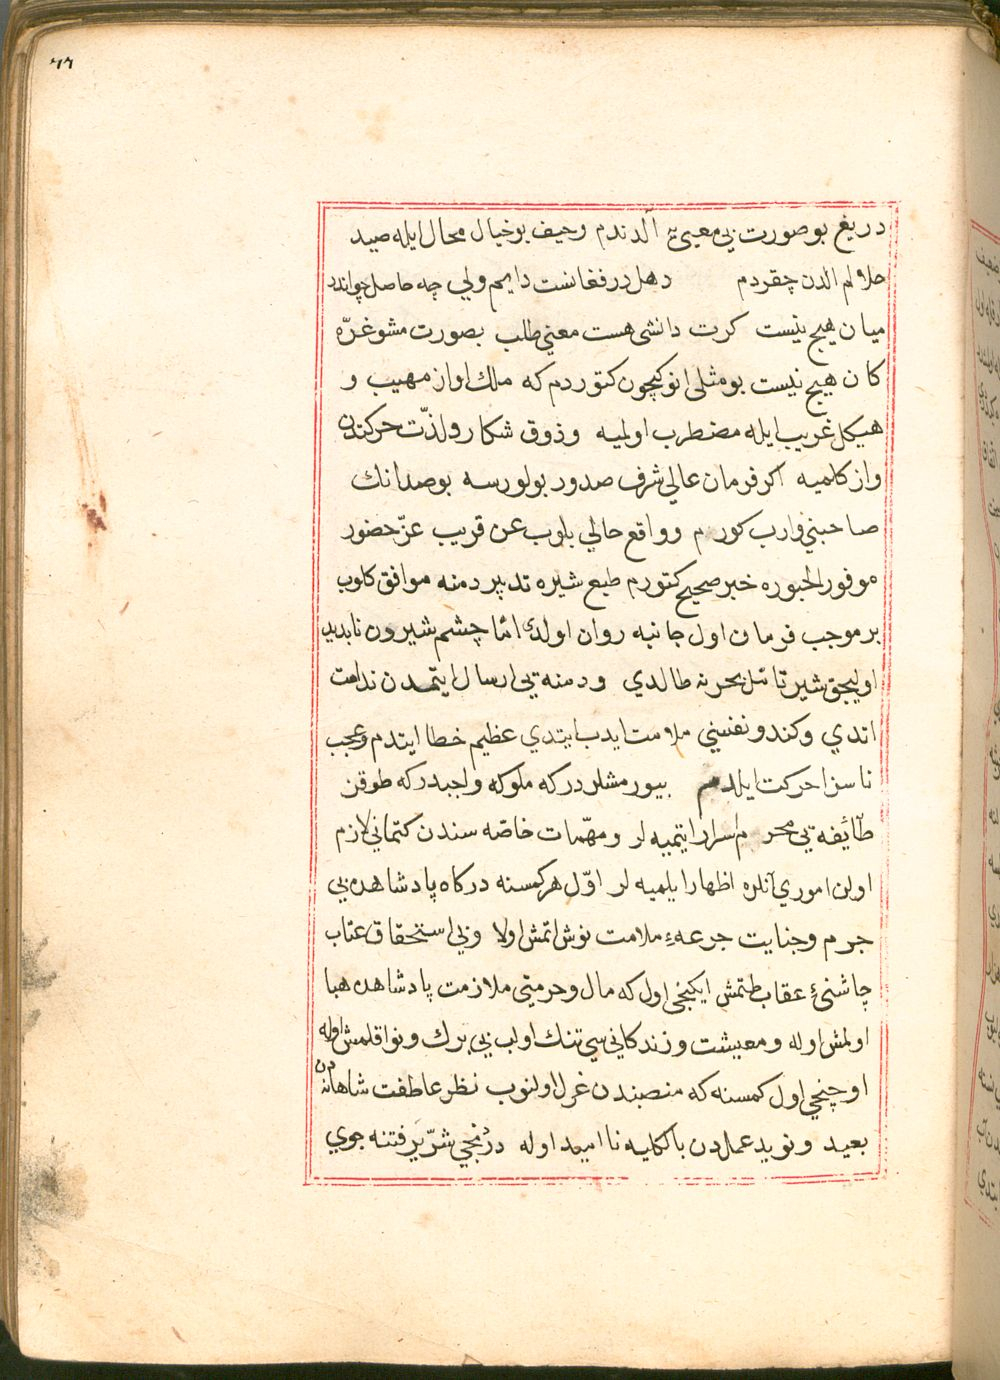 ٦٦
دريغ بو صورت بي معني ئه الدندم وحيف بو خيال محال ايله صيد
حلالم الدن چقردم دهل در فغانست دايم ولي چه حاصل چو اندر
ميان هيچ نيست كرت دانشى هست معني طلب بصورت مشو غرّه
كان هيچ نيست بو مثلى انوكيچون كتوردم كه ملك اواز مهيب و
هيكل غريب ايله مضطرب اولميه و ذوق شكار ولذّت حركتدن
واز كلميه اكر فرمان عالي شرف صدور بولورسه بو صدانك
صاحبني وارب كورم و واقع حالي بلوب عن قريب عزّ حضور
موفور الحبوره خبر صحيح كتورم طبع شيره تدبير دمنه موافق كلوب
بر موجب فرمان اول جانبه روان اولدى امّا چشم شيرون نابديد
اوليجق شير تأمّل بحرنه طالدي و دمنه يي ارسال ايتمدن ندامت
اتدي و كندو نفسني ملامت ايدب ايتدي عظيم خطا ايتدم وعجب
ناسزا حركت ايلدم بيورمشلردركه ملوكه واجبدركه طوقز
طآئفه يي محرم اسرار ايتميه لر و مهمّات خاصّه سندن كتماني لازم
اولن اموري آنلره اظهار ايلميه لر اوّل هر كمسنه دركاه پادشاهدن بي
جرم وجنايت جرعهء ملامت نوش اتمش اولا وبي استحقاق عتاب
چاشنئ عقاب طتمش ايكنجى اول كه مال و حرمتي ملازمت پادشاهده هبا
اولمش اوله و معيشت و زندكاني سي تنك اولب بي برك ونوا قلمش اوله
اوچنجي اول كمسنه كه منصبندن عزل اولنوب نظر عاطفت شاهانه دن
بعيد و نويد عملدن بالكليه نا اميد اوله دردنجي شرّير فتنه جوي